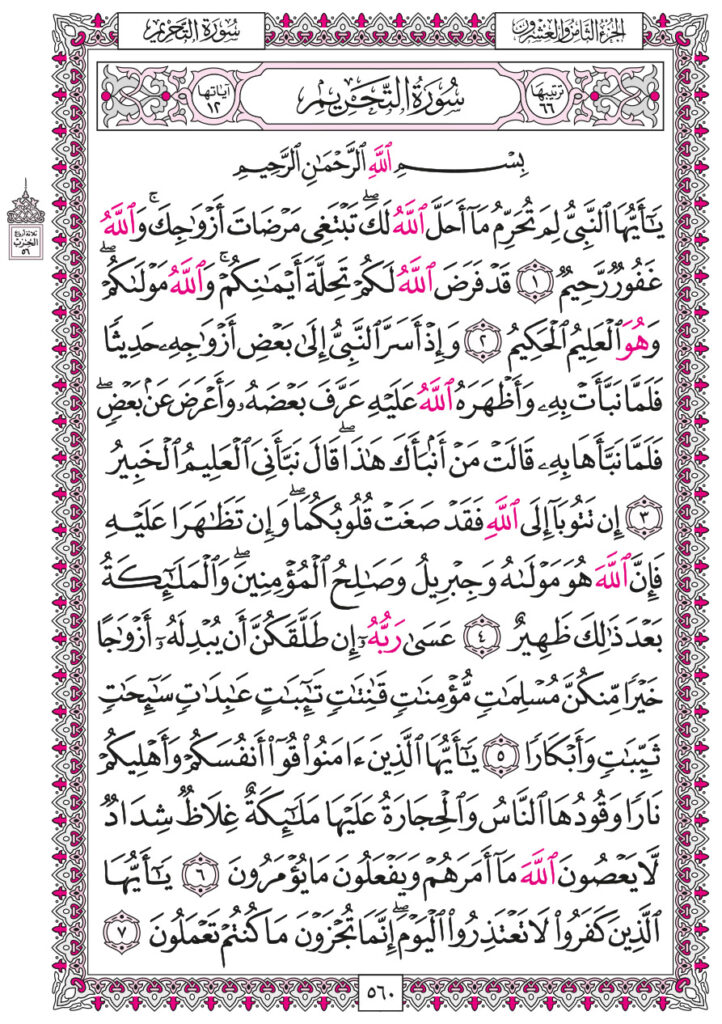 الجزء الثامن والعشرون
سورة التحريم
ترتيبها ٦٦
سُورَةُ التَّحْرِيمِ
آياتها ١٢
بِسْمِ اللَّهِ الرَّحْمَٰنِ الرَّحِيمِ
يَٰٓأَيُّهَا ٱلنَّبِيُّ لِمَ تُحَرِّمُ مَآ أَحَلَّ ٱللَّهُ لَكَۖ تَبْتَغِي مَرْضَاتَ أَزْوَٰجِكَۚ وَٱللَّهُ
غَفُورٞ رَّحِيمٞ ١ قَدْ فَرَضَ ٱللَّهُ لَكُمْ تَحِلَّةَ أَيْمَٰنِكُمْۚ وَٱللَّهُ مَوْلَىٰكُمْۖ
وَهُوَ ٱلْعَلِيمُ ٱلْحَكِيمُ ٢ وَإِذْ أَسَرَّ ٱلنَّبِيُّ إِلَىٰ بَعْضِ أَزْوَٰجِهِۦ حَدِيثٗا
فَلَمَّا نَبَّأَتْ بِهِۦ وَأَظْهَرَهُ ٱللَّهُ عَلَيْهِ عَرَّفَ بَعْضَهُۥ وَأَعْرَضَ عَنۢ بَعْضٖۖ
فَلَمَّا نَبَّأَهَا بِهِۦ قَالَتْ مَنْ أَنۢبَأَكَ هَٰذَاۖ قَالَ نَبَّأَنِيَ ٱلْعَلِيمُ ٱلْخَبِيرُ
٣ إِن تَتُوبَآ إِلَى ٱللَّهِ فَقَدْ صَغَتْ قُلُوبُكُمَاۖ وَإِن تَظَٰهَرَا عَلَيْهِ
فَإِنَّ ٱللَّهَ هُوَ مَوْلَىٰهُ وَجِبْرِيلُ وَصَٰلِحُ ٱلْمُؤْمِنِينَۖ وَٱلْمَلَٰٓئِكَةُ
بَعْدَ ذَٰلِكَ ظَهِيرٌ ٤ عَسَىٰ رَبُّهُۥٓ إِن طَلَّقَكُنَّ أَن يُبْدِلَهُۥٓ أَزْوَٰجًا
خَيْرٗا مِّنكُنَّ مُسْلِمَٰتٖ مُّؤْمِنَٰتٖ قَٰنِتَٰتٖ تَٰٓئِبَٰتٍ عَٰبِدَٰتٖ سَٰٓئِحَٰتٖ
ثَيِّبَٰتٖ وَأَبْكَارٗا ٥ يَٰٓأَيُّهَا ٱلَّذِينَ ءَامَنُوا۟ قُوٓا۟ أَنفُسَكُمْ وَأَهْلِيكُمْ
نَارٗا وَقُودُهَا ٱلنَّاسُ وَٱلْحِجَارَةُ عَلَيْهَا مَلَٰٓئِكَةٌ غِلَاظٞ شِدَادٞ
لَّا يَعْصُونَ ٱللَّهَ مَآ أَمَرَهُمْ وَيَفْعَلُونَ مَا يُؤْمَرُونَ ٦ يَٰٓأَيُّهَا
ٱلَّذِينَ كَفَرُوا۟ لَا تَعْتَذِرُوا۟ ٱلْيَوْمَۖ إِنَّمَا تُجْزَوْنَ مَا كُنتُمْ تَعْمَلُونَ ٧
ثلاثة أرباع
الحزب
٥٦
٥٦٠